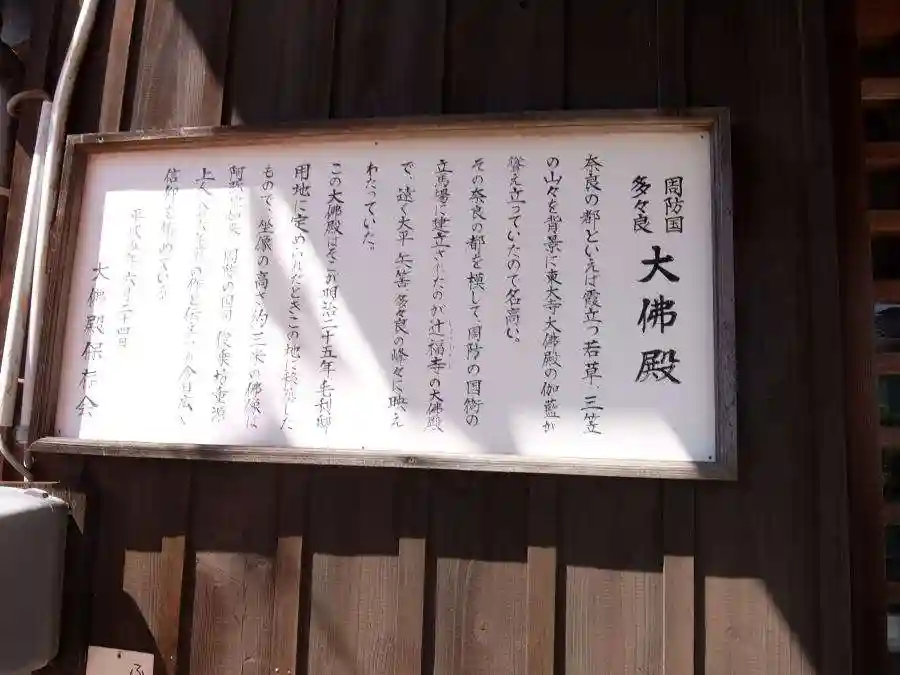 周防国
多々良
大佛殿
奈良の都といえば霞立つ若草、三笠
の山々を背景に東大寺大佛殿の伽藍が
聳え立っていたので名高い。
その奈良の都を模して、周防の国衙の
立馬場に建立されたのが辻福寺の大佛殿
で、遠く大平 矢筈 多々良の峰々に映え
わたっていた。
この大佛殿はその明治二十五年 毛利邸
用地に定められたときこの地に移築した
もので、坐像の高さ約三米の佛像は
阿弥陀如来 周防の国司 俊乗坊重源
上人 の作と伝え 今日 広く
信仰を めている
平成五年六月二十四日
大佛殿保存会
ふ